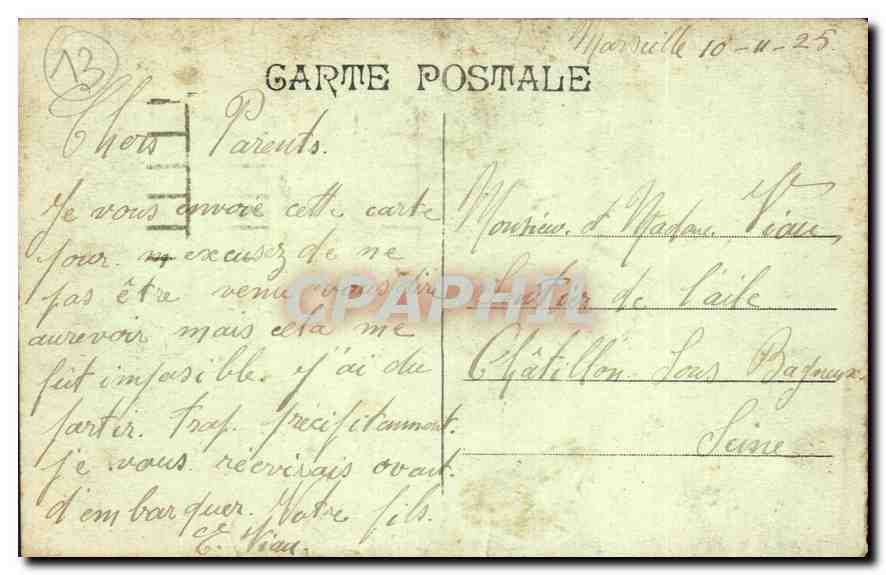 13
Marseille 10-11-25.
CARTE POSTALE
Chers Parents.
Je vous envoie cette carte
pour m excusez de ne
pas être venu vous dire
aurevoir mais cela me
fut imposible. J'ai du
partir. trop. précipitamment.
Je vous réecrirais avant.
d'embarquer. Votre fils.
E. Viau.
Monsieur. et Madame Viau
Sentier de l'aile
Châtillon Sous Bagneux.
Seine
CPAPHIL